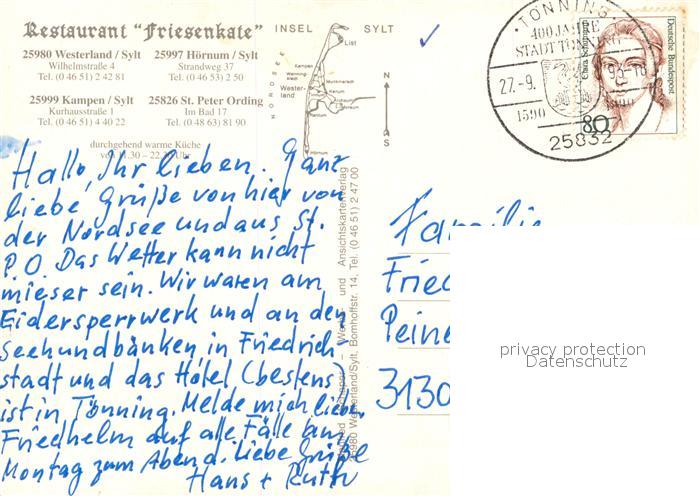 Restaurant "Friesenkate"
25980 Westerland / Sylt
Wilhelmstraße 4
Tel. (0 46 51) 2 42 81
25997 Hörnum / Sylt
Strandweg 37
Tel. (0 46 53) 2 50
25999 Kampen / Sylt
Kurhausstraße 1
Tel. (0 46 51) 4 40 22
25826 St. Peter Ording
Im Bad 17
Tel. (0 48 63) 81 90
durchgehend warme Küche
von 11.30 – 22.30 Uhr
INSEL SYLT
NORDSEE
List
Kampen
Westerland
Keitum
Rantum
Hörnum
N
S
TÖNNING
400 JAHRE
STADT TÖNNING
27.-9.
1590
1990
25832
Clara Schumann
Deutsche Bundespost
80
Hallo, Ihr lieben. Ganz
liebe Grüße von hier von
der Nordsee und aus St.
P.O. Das Wetter kann nicht
mieser sein. Wir waren am
Eidersperrwerk und an den
Seehundbänken in Friedrich-
stadt und das Hotel (bestens)
ist in Tönning. Melde mich lieber
Friedhelm auf alle Fälle am
Montag zum Abend. Liebe Grüße
Hans + Ruth
und Ansichtskartenverlag
25980 Westerland/Sylt, Bomhoffstr. 14, Tel. (0 46 51) 2 47 00
Familie
Fried
Peine
3130
privacy protection
Datenschutz